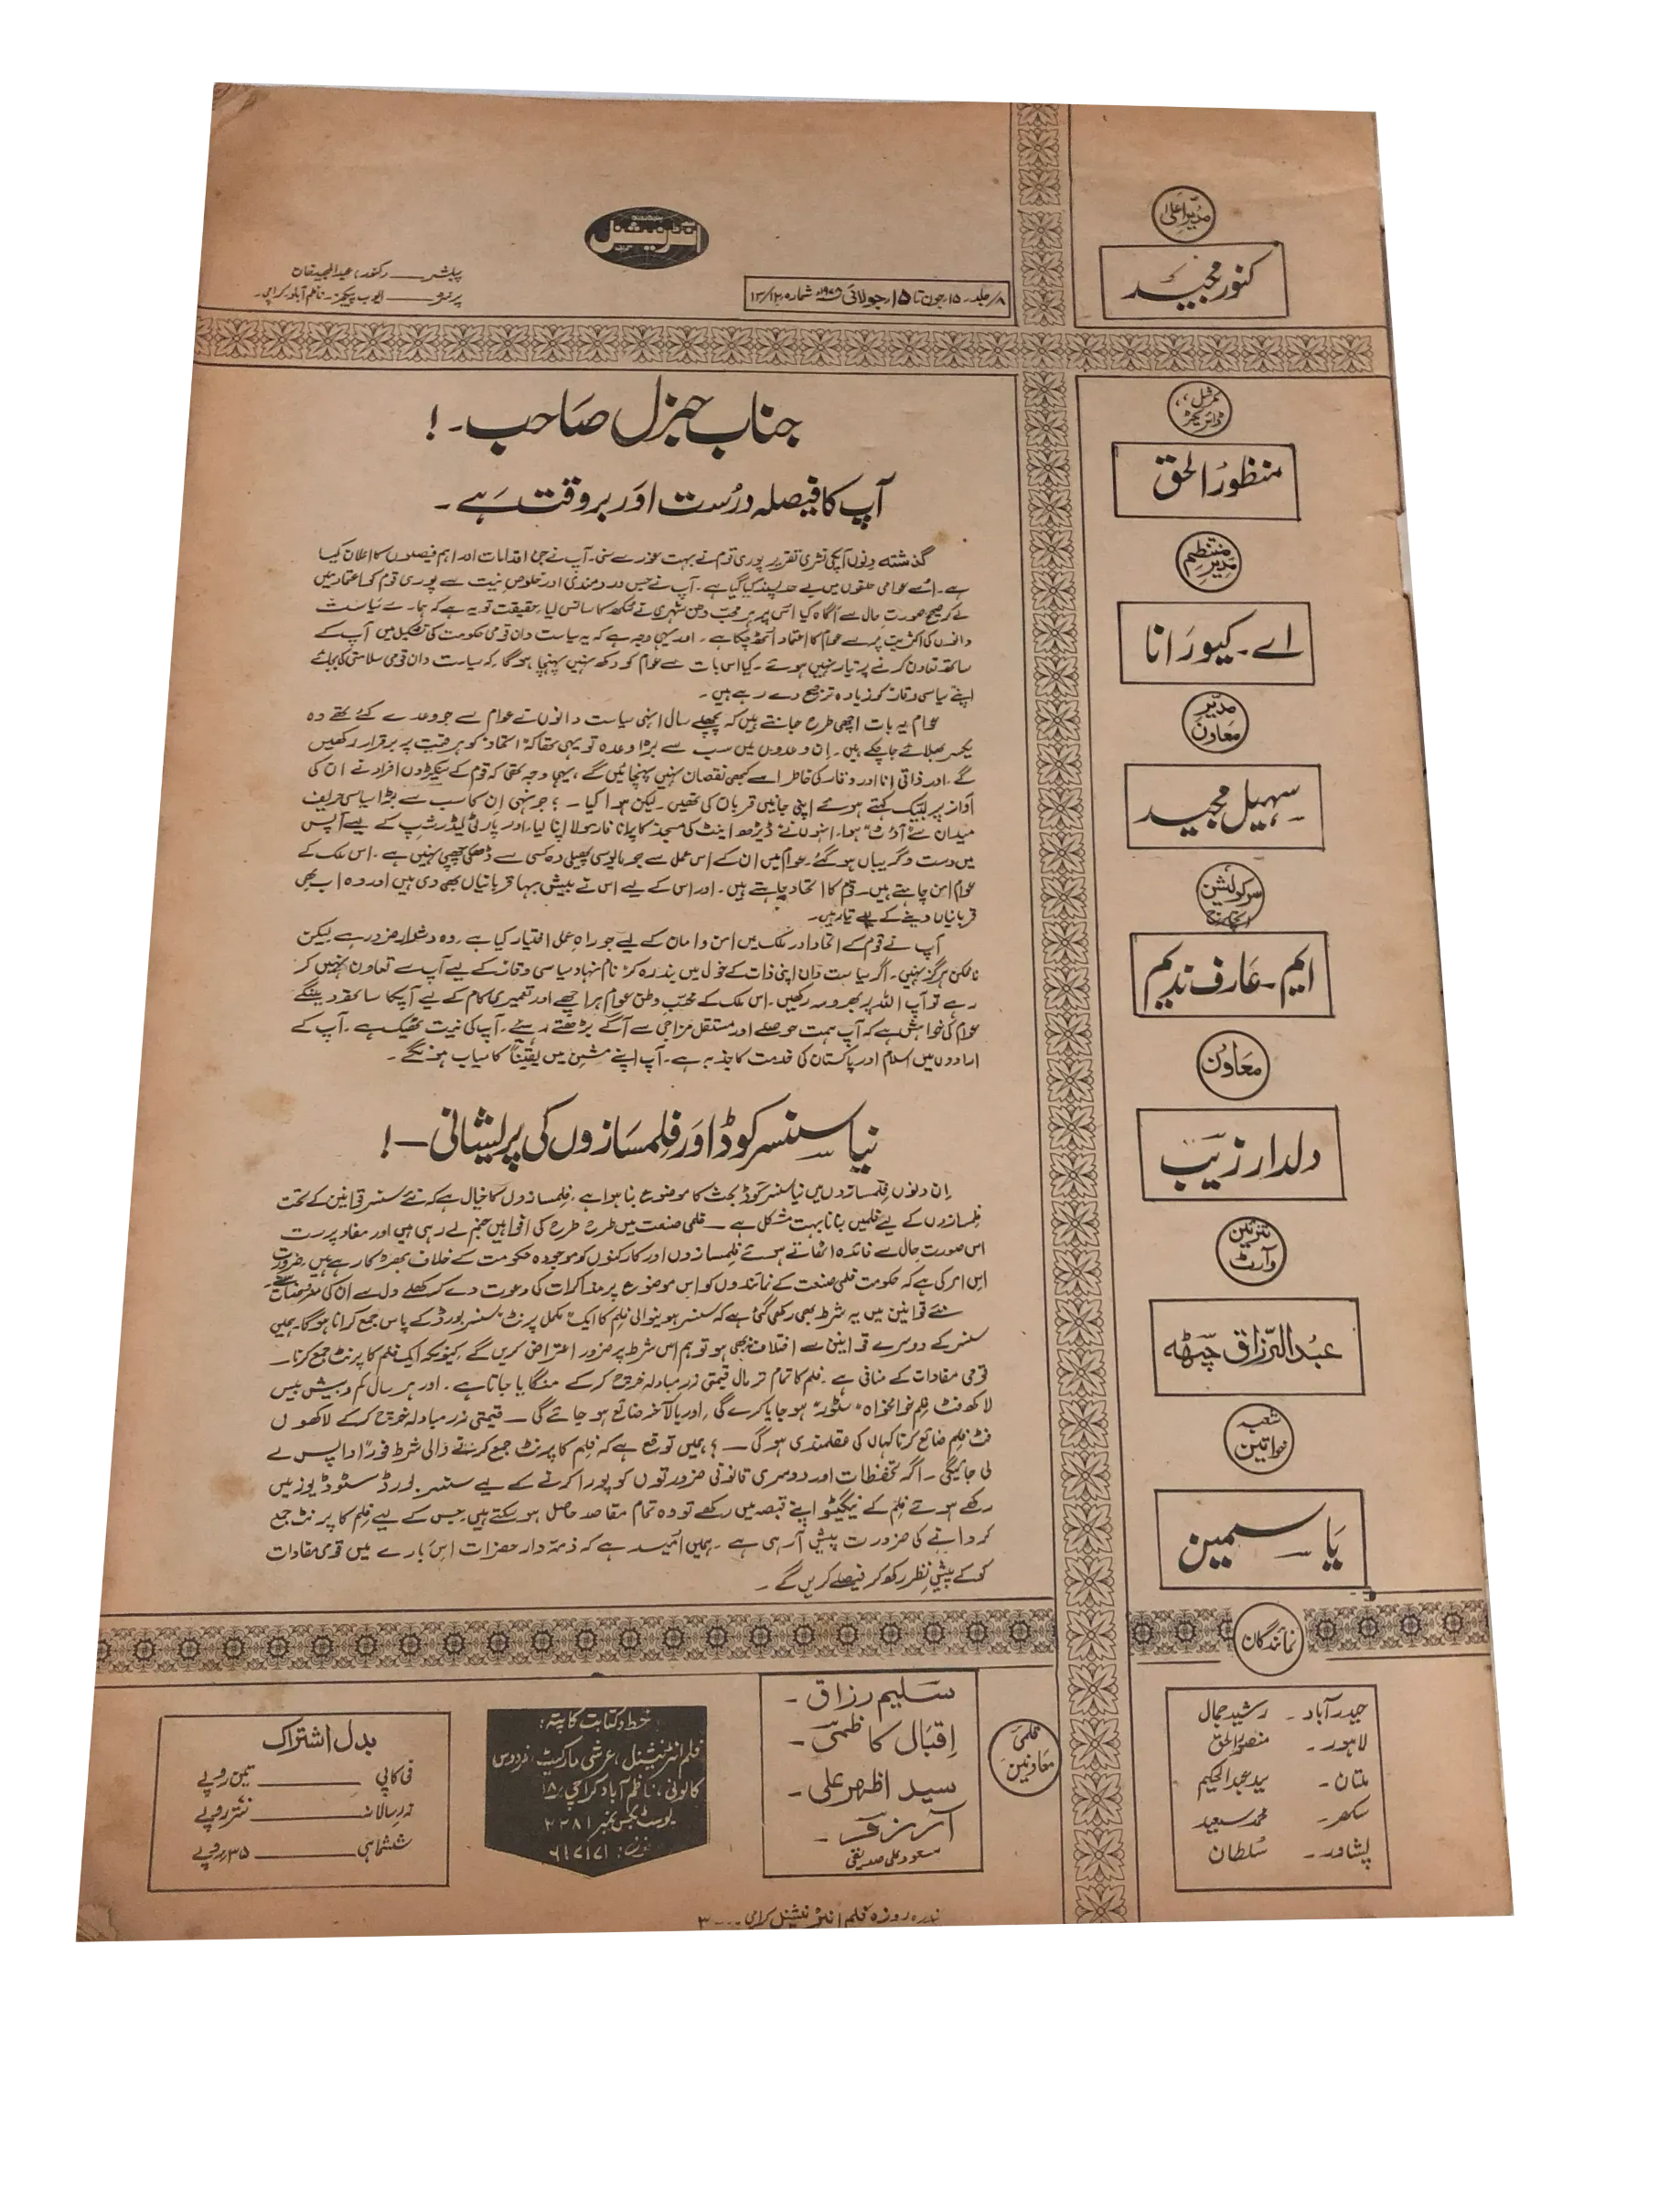 مدیر اعلیٰ
کنور مجید
انٹرنیشنل
۸/جلد۔ ۱۵ جون تا ۱۵ جولائی ۱۹۷۸ء شمارہ ۱۲/۱۳
پبلشر ــــ کنور عبدالمجید خان
پرنٹر ــــ ایوب پیکجز۔ ناظم آباد کراچی۔
کمرشل
ڈائریکٹر
منظور الحق
منتظم
مدیر
اے۔ کیو رانا
مدیر
معاون
سہیل مجید
سرکولیشن
انچارج
ایم۔ عارف ندیم
معاون
دلدار زیب
تزئین
و آرٹ
عبدالرزاق چٹھہ
شعبہ
خواتین
یاسمین
جناب جنرل صاحب۔!
آپ کا فیصلہ درست اور بروقت ہے۔
گذشتہ دنوں آپکی نشری تقریر پوری قوم نے بہت غور سے سنی۔ آپ نے جن اقدامات اور اہم فیصلوں کا اعلان کیا
ہے۔ اُسے عوامی حلقوں میں بے حد پسند کیا گیا ہے۔ آپ نے جس دردمندی اور خلوصِ نیت سے پوری قوم کو اعتماد میں
لے کر صحیح صورتِ حال سے آگاہ کیا اس پر ہر محب وطن شہری نے سکھ کا سانس لیا، حقیقت تو یہ ہے کہ ہمارے سیاست
دانوں کی اکثریت پر سے عوام کا اعتماد اُٹھ چکا ہے۔ اور یہی وجہ ہے کہ یہ سیاست دان قومی حکومت کی تشکیل میں آپ کے
ساتھ تعاون کرنے پر تیار نہیں ہوئے۔ کیا اس بات سے عوام کو دکھ نہیں پہنچا ہوگا کہ سیاست دان قومی سلامتی کی بجائے
اپنے سیاسی وقار کو زیادہ ترجیح دے رہے ہیں۔
عوام یہ بات اچھی طرح جانتے ہیں کہ پچھلے سال انہی سیاست دانوں نے عوام سے جو وعدے کئے تھے وہ
یکسر بھلائے جا چکے ہیں۔ اِن وعدوں میں سب سے بڑا وعدہ تو یہی تھا کہ اتحاد کو ہر قیمت پر برقرار رکھیں
گے۔ اور ذاتی انا اور وقار کی خاطر اسے کبھی نقصان نہیں پہنچائیں گے، یہی وجہ تھی کہ قوم کے سینکڑوں افراد نے ان کی
آواز پر لبیک کہتے ہوئے اپنی جانیں قربان کی تھیں۔ لیکن ہوا کیا ــ؟ جونہی اِن کا سب سے بڑا سیاسی حریف
میدان سے "آؤٹ" ہوا۔ انہوں نے ڈیڑھ اینٹ کی مسجد کا پرانا فارمولا اپنا لیا، اور پارٹی لیڈر شپ کے لیے آپس
میں دست و گریباں ہو گئے۔ عوام میں ان کے اس عمل سے جو مایوسی پھیلی وہ کسی سے ڈھکی چھپی نہیں ہے۔ اس ملک کے
عوام امن چاہتے ہیں۔ قوم کا اتحاد چاہتے ہیں۔ اور اس کے لیے اس نے بیش بہا قربانیاں بھی دی ہیں اور وہ اب بھی
قربانیاں دینے کے لیے تیار ہیں۔
آپ نے قوم کے اتحاد اور ملک میں امن و امان کے لیے جو راہِ عمل اختیار کیا ہے۔ وہ دشوار ضرور ہے لیکن
ناممکن ہرگز نہیں۔ اگر سیاست دان اپنی ذات کے خول میں بند رہ کر نام نہاد سیاسی وقار کے لیے آپ سے تعاون نہیں کر
رہے تو آپ اللہ پر بھروسہ رکھیں۔ اس ملک کے محب وطن عوام ہر اچھے اور تعمیری کام کے لیے آپکا ساتھ دینگے
عوام کی خواہش ہے کہ آپ ہمت حوصلے اور مستقل مزاجی سے آگے بڑھتے رہئیے۔ آپ کی نیت ٹھیک ہے۔ آپ کے
ارادوں میں اسلام اور پاکستان کی خدمت کا جذبہ ہے۔ آپ اپنے مشن میں یقیناً کامیاب ہونگے۔
نیا سنسر کوڈ اور فلمسازوں کی پریشانی ــ!
اِن دنوں فلمسازوں میں نیا سنسر کوڈ بحث کا موضوع بنا ہوا ہے، فلمسازوں کا خیال ہے کہ نئے سنسر قوانین کے تحت
فلمسازوں کے لیے فلمیں بنانا بہت مشکل ہے ــ فلمی صنعت میں طرح طرح کی افواہیں جنم لے رہی ہیں اور مفاد پرست
اس صورتِ حال سے فائدہ اٹھاتے ہوئے فلمسازوں اور کارکنوں کو موجودہ حکومت کے خلاف بھڑکا رہے ہیں، ضرورت
اِس امر کی ہے کہ حکومت فلمی صنعت کے نمائندوں کو اِس موضوع پر مذاکرات کی دعوت دے کر کھلے دل سے ان کی معروضات سنے۔
نئے قوانین میں یہ شرط بھی رکھی گئی ہے کہ سنسر ہونیوالی فلم کا ایک "مکمل پرنٹ" سنسر بورڈ کے پاس جمع کرانا ہوگا۔ ہمیں
سنسر کے دوسرے قوانین سے اختلاف نہ بھی ہو تو ہم اس شرط پر ضرور اعتراض کریں گے، کیونکہ ایک فلم کا پرنٹ جمع کرنا ــ
قومی مفادات کے منافی ہے۔ فلم کا تمام تر مال قیمتی زرمبادلہ خرچ کر کے منگایا جاتا ہے۔ اور ہر سال کم و بیش بیس
لاکھ فٹ فلم خوامخواہ "سٹور" ہو جایا کرے گی، اور بالآخر ضائع ہو جائے گی ــ قیمتی زرمبادلہ خرچ کر کے لاکھوں
فٹ فلم ضائع کرنا کہاں کی عقلمندی ہوگی ــ؟ ہمیں توقع ہے کہ فلم کا پرنٹ جمع کرنے والی شرط فوراً واپس لے
لی جائیگی۔ اگر تحفظات اور دوسری قانونی ضرورتوں کو پورا کرنے کے لیے سنسر بورڈ سٹوڈیوز میں
رکھے ہوئے فلم کے نیگیٹو اپنے قبضہ میں رکھے تو وہ تمام مقاصد حاصل ہو سکتے ہیں جس کے لیے فلم کا پرنٹ جمع
کروانے کی ضرورت پیش آ رہی ہے۔ ہمیں اُمید ہے کہ ذمہ دار حضرات اِس بارے میں قومی مفادات
کو پیشِ نظر رکھ کر فیصلے کریں گے۔
نمائندگان
حیدرآباد۔ رشید جمال
لاہور۔ منصور الحق
ملتان۔ سید عبدالحکیم
سکھر۔ محمد سعید
پشاور۔ سُلطان
قلمی
معاونین
سلیم رزاق۔
اِقبال کاظمی۔
سید اظہر علی۔
مسعود علی صدیقی
خط و کتابت کا پتہ:
فلم انٹرنیشنل، عرشی مارکیٹ، فردوس
کالونی، ناظم آباد کراچی، ۱۸
پوسٹ بکس نمبر ۲۲۸۱
فون: ۶۱۷۱۷۱
بدل اشتراک
فی کاپی ــــ تین روپے
زرِ سالانہ ــــ ستر روپے
ششماہی ــــ ۳۵ روپے
پندرہ روزہ فلم انٹرنیشنل کراچی ۔۔۔ ۳